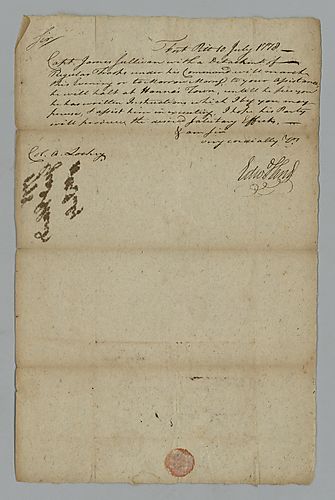 Sir
Fort Pitt 10 July 1778 —
Capt. James Sullivan with a Detachment of
Regular Troops under his Command will march
this Evening or to Morrow Morng. to your Assistance
he will halt at Hanna's Town, untill he sees you
he has written Instructions which I beg you may
peruse, & assist him in executg. I hope his Party
will produce the desired salutary Effects, —
I am Sir
very cordially Yrs.
Edwd. Hand
Col. A. Lochry